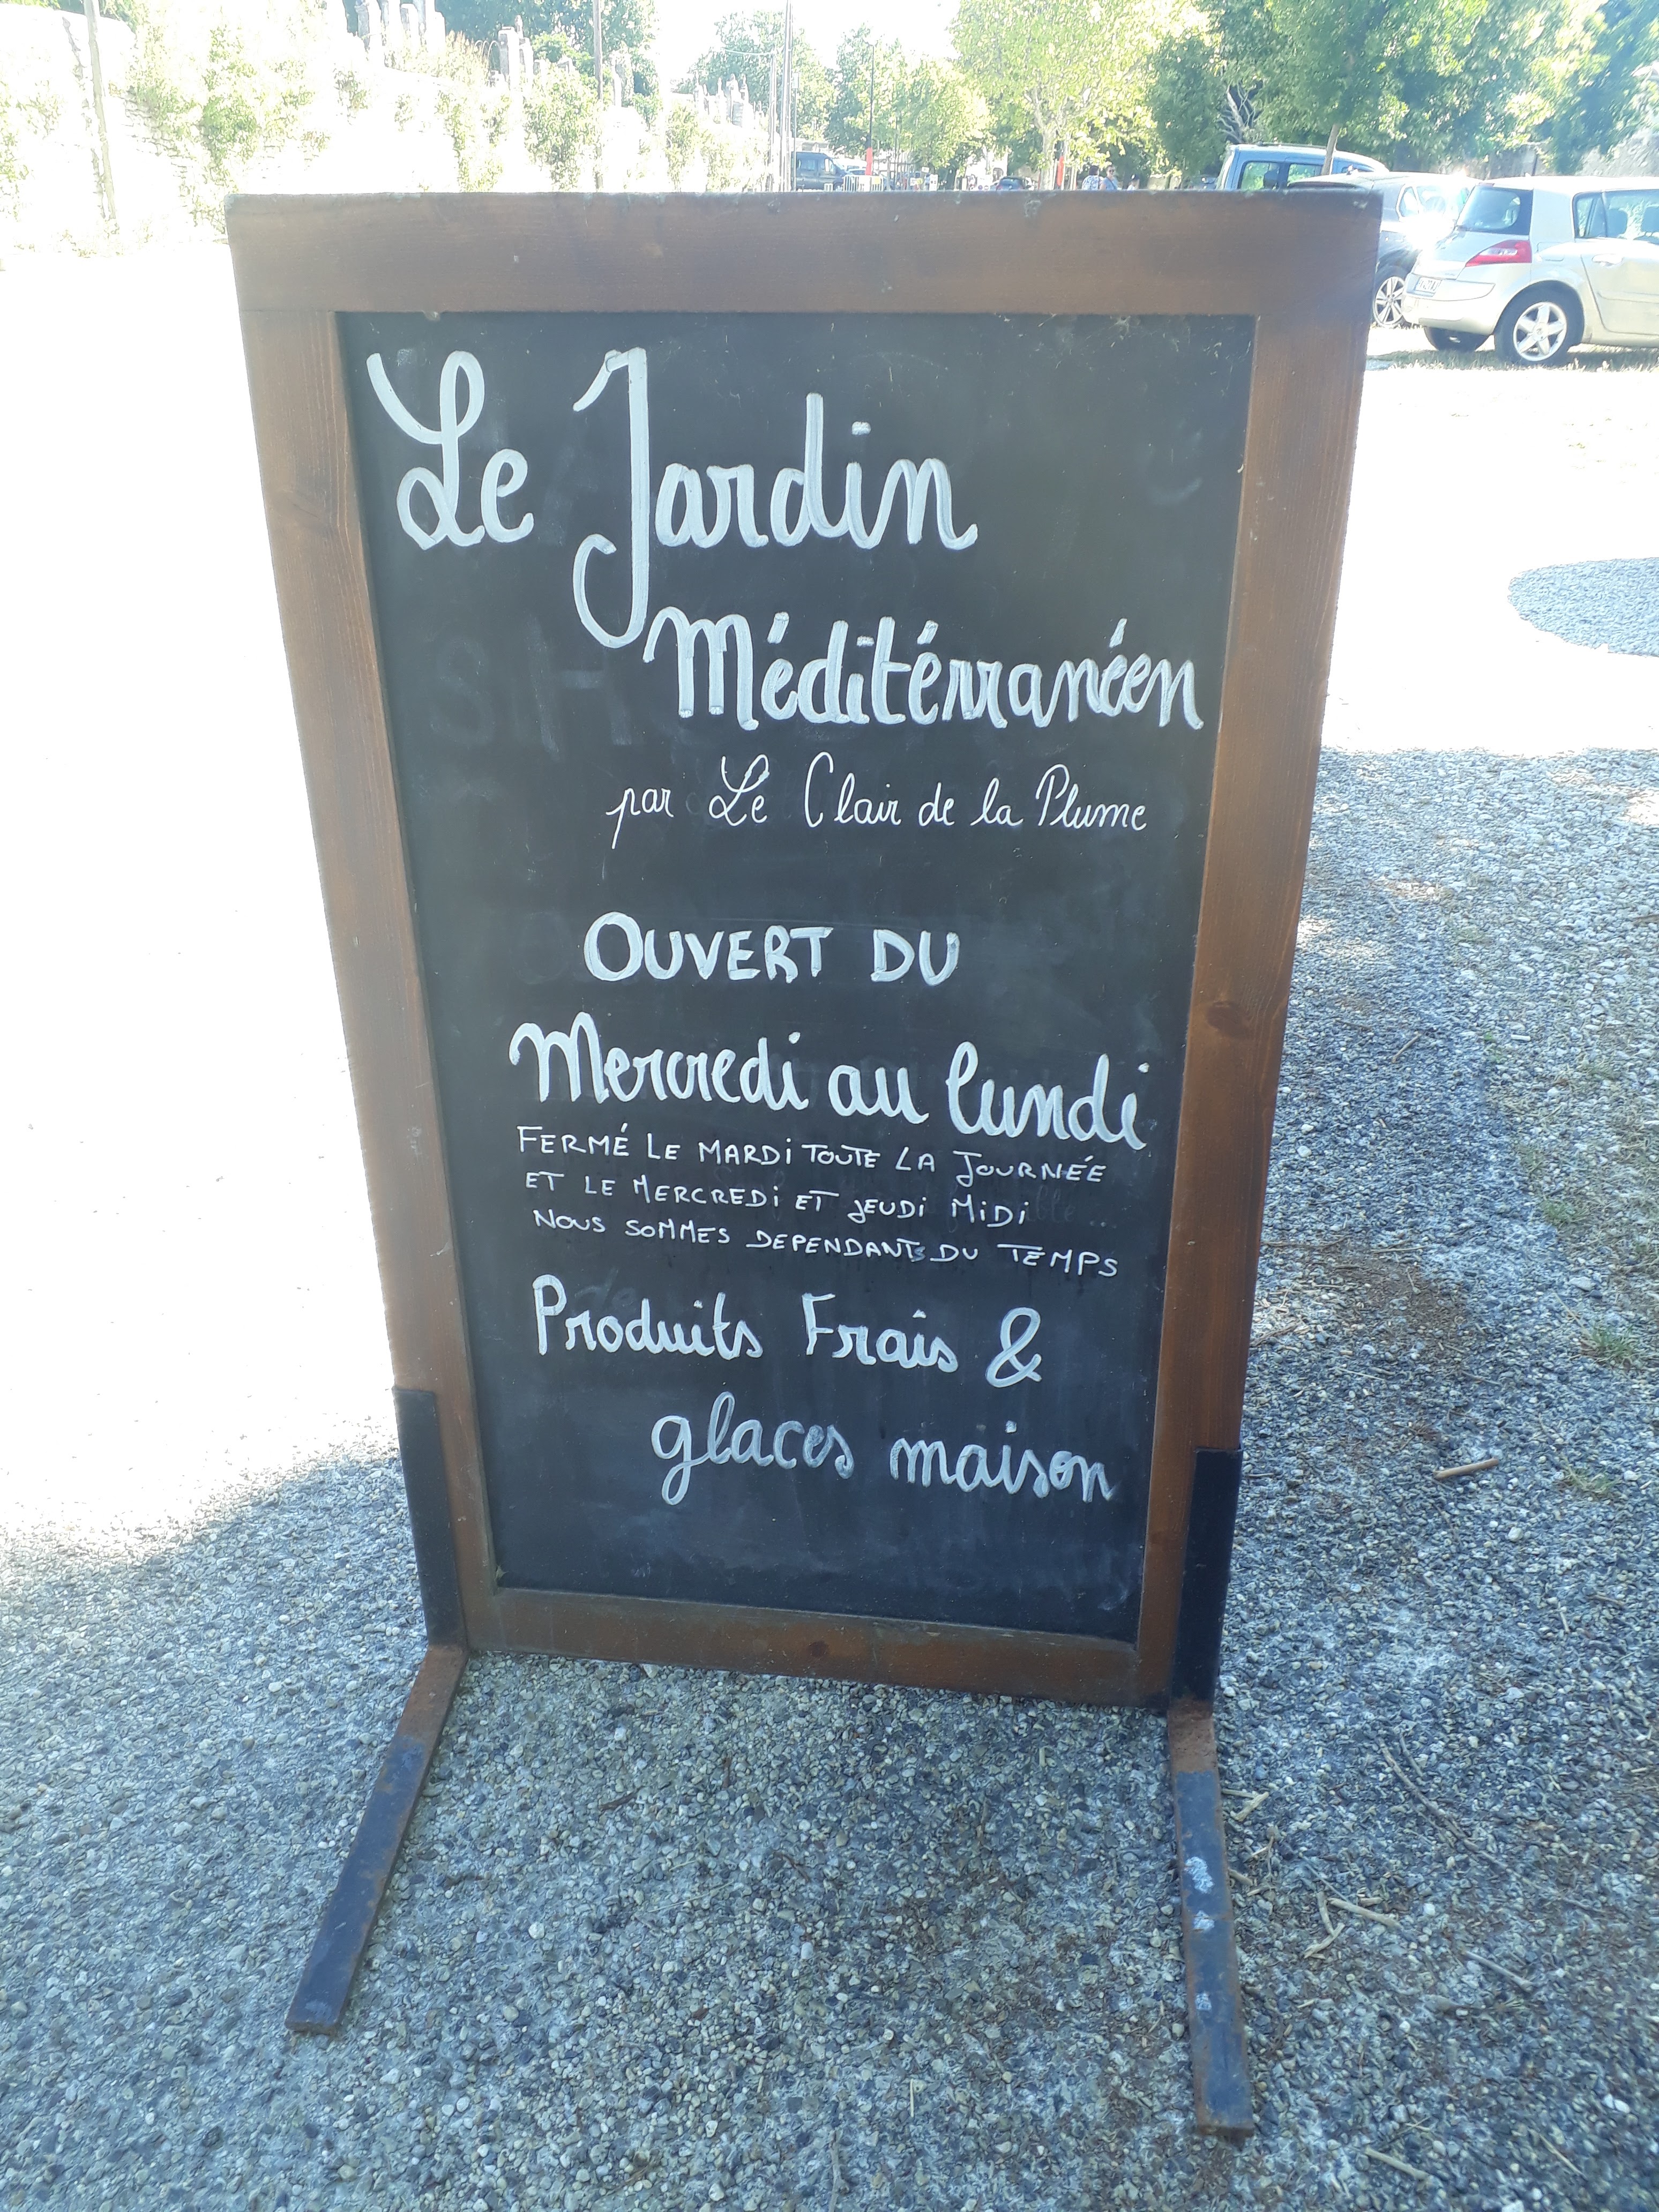 Le Jardin
Méditérranéen
par Le Clair de la Plume
OUVERT DU
Mercredi au lundi
FERMÉ LE MARDI TOUTE LA JOURNÉE
ET LE MERCREDI ET JEUDI MIDI
NOUS SOMMES DEPENDANTS DU TEMPS
Produits Frais &
glaces maison